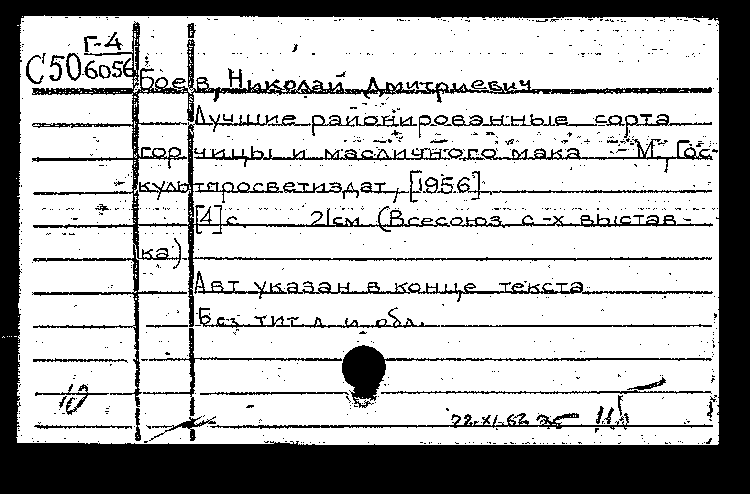 Г-4
С50 6056
Боев, Николай Дмитриевич
Лучшие районированные сорта
горчицы и масличного мака – М., Гос-
культпросветиздат, [1956]
[4] с 21см (Всесоюз с-х выстав-
ка)
Авт указан в конце текста
Без тит л и обл.
10